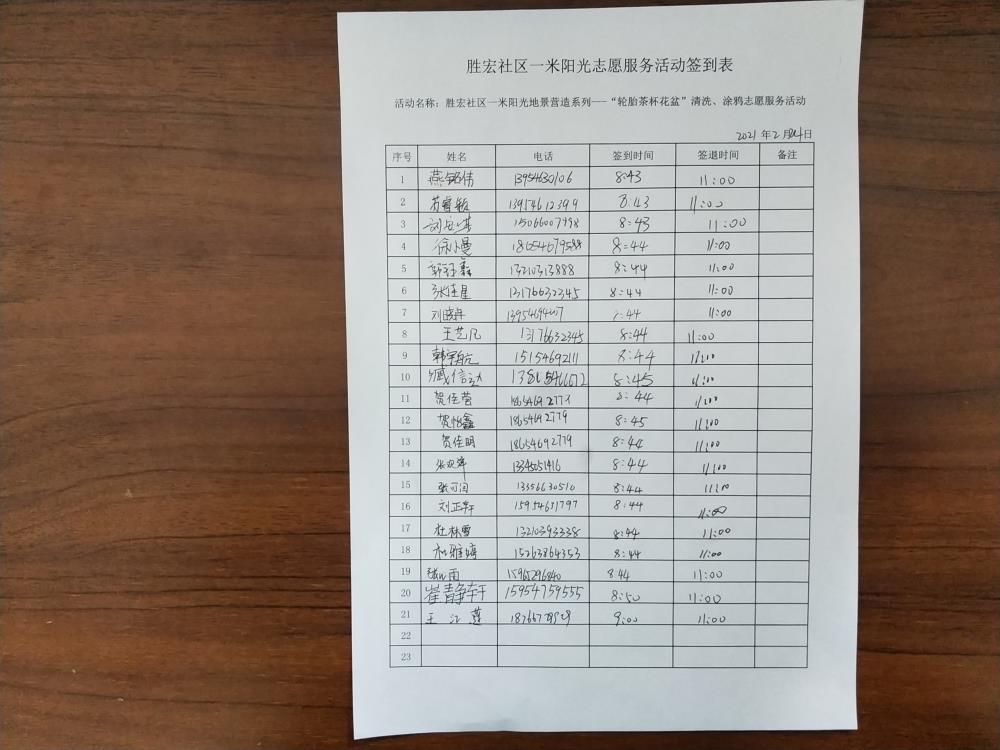 胜宏社区一米阳光志愿服务活动签到表
活动名称：胜宏社区一米阳光地景营造系列---“轮胎茶杯花盆”清洗、涂鸦志愿服务活动
2021 年 2 月 日
序号 姓名 电话 签到时间 签退时间 备注
1 燕铭伟 13954630106 8:43 11:00
2 苏睿敏 8:43 11:00
3 15066007998 8:43 11:00
4 徐小曼 8:44 11:00
5 13210313888 8:44 11:00
6 张连星 13176632345 8:44 11:00
7 刘晓舟 8:44 11:00
8 王艺凡 13176632345 8:44 11:00
9 韩宇航 15154692111 8:44 11:00
10 臧信动 8:45 11:00
11 贺佳萱 18654692779 8:44 11:00
12 贺怡鑫 18654692779 8:45 11:00
13 贺佳明 18654692779 8:44 11:00
14 13345051416 8:44 11:00
15 张可闫 13356630510 8:44 11:00
16 刘正轩 15954611797 8:44 11:00
17 杜林雪 13210393338 8:44 11:00
18 15263864353 8:44 11:00
19 15965296840 8:44 11:00
20 崔静轩 15954759555 8:50 11:00
21 王江莲 9:00 11:00
22
23